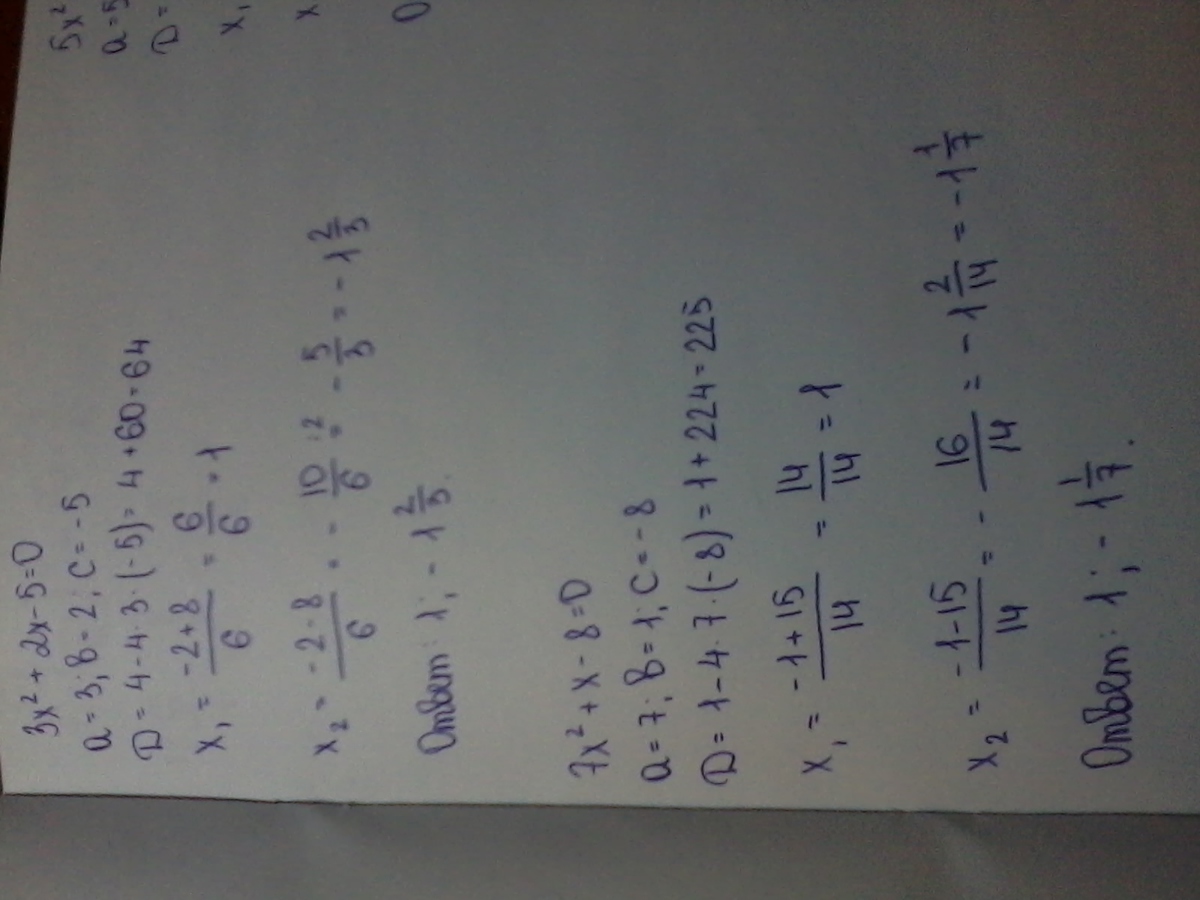 3x² + 2x - 5 = 0
a = 3; b = 2; c = -5
D = 4 - 4·3·(-5) = 4 + 60 = 64
x₁ = (-2+8)/6 = 6/6 = 1
x₂ = (-2-8)/6 = - 10/6 :2 = - 5/3 = - 1 2/3
Ответ: 1; - 1 2/5.
7x² + x - 8 = 0
a = 7; b = 1; c = -8
D = 1 - 4·7·(-8) = 1 + 224 = 225
x₁ = (-1+15)/14 = 14/14 = 1
x₂ = (-1-15)/14 = - 16/14 = - 1 2/14 = - 1 1/7
Ответ: 1; - 1 1/7.
5x²
a = 5
D =
x₁
x
О